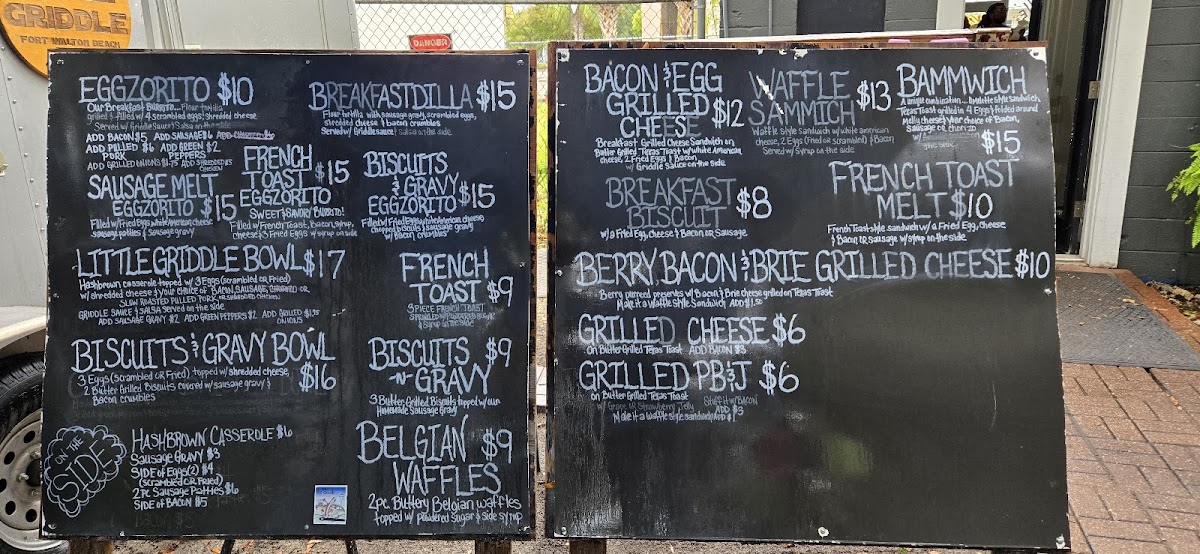 GRIDDLE
FORT WALTON BEACH
DANGER
EGGZORITO $10
Our Breakfast Burrito... Flour tortilla
grilled & filled w/ 4 scrambled eggs, shredded cheese
Served w/ Griddle Sauce & Salsa on the side
ADD BACON $5 ADD SAUSAGE $6
ADD PULLED $6 ADD GREEN $2
PORK PEPPERS
ADD GRILLED ONIONS $1.75 ADD SHREDDED $5
CHICKEN
BREAKFASTDILLA $15
Flour tortilla with sausage gravy, scrambled eggs,
shredded cheese & bacon crumbles
Served w/ Griddle sauce & salsa on the side
SAUSAGE MELT
EGGZORITO $15
Filled w/ Fried Eggs, white American cheese
sausage patties & sausage gravy
FRENCH
TOAST $15
EGGZORITO
SWEET & SAVORY BURRITO!
Filled w/ French Toast, Bacon, syrup,
cheese & 3 Fried Eggs w/ syrup on side
BISCUITS
& GRAVY $15
EGGZORITO
Filled w/ Fried Eggs, white American cheese
chopped biscuits & sausage gravy
w/ Bacon crumbles
LITTLE GRIDDLE BOWL $17
Hashbrown casserole topped w/ 3 Eggs (Scrambled OR Fried)
w/ shredded cheese & your choice of BACON, SAUSAGE, CHORIZO OR
SLOW ROASTED PULLED PORK, OR SHREDDED CHICKEN
GRIDDLE SAUCE & SALSA Served on the side
ADD SAUSAGE GRAVY $2 ADD GREEN PEPPERS $2 ADD GRILLED $1.75
ONIONS
FRENCH
TOAST $9
3 PIECE FRENCH TOAST
SPRINKLED w/ POWDERED SUGAR
& Syrup on the side
BISCUITS & GRAVY BOWL
$16
3 Eggs (Scrambled OR Fried) topped w/ shredded cheese,
2 Butter Grilled Biscuits covered w/ sausage gravy &
Bacon crumbles
BISCUITS $9
-N- GRAVY
3 Butter Grilled Biscuits topped w/ our
Homemade Sausage Gravy
ON THE
SIDE
HASHBROWN CASSEROLE $6
Sausage GRAVY $3
SIDE of Eggs (2) $4
(scrambled OR Fried)
2 pc Sausage Patties $6
SIDE OF BACON $5
BELGIAN $9
WAFFLES
2pc. Buttery Belgian waffles
topped w/ powdered sugar & side syrup
BACON & EGG
GRILLED $12
CHEESE
Breakfast Grilled Cheese Sandwich on
Butter Grilled Texas Toast w/ white American
cheese, 2 Fried Eggs & Bacon
w/ Griddle Sauce on the side
WAFFLE $13
SAMMICH
Waffle Style Sandwich w/ white american
cheese, 2 Eggs (Fried or scrambled) & Bacon
Served w/ Syrup on the side
BAMMWICH
A unique combination... Omelette style Sandwich,
Texas Toast grilled in 4 Eggs & folded around
melty cheese & your choice of Bacon,
Sausage OR CHORIZO
$15
BREAKFAST $8
BISCUIT
w/ a Fried Egg, cheese & Bacon or Sausage
FRENCH TOAST
MELT $10
French Toast style sandwich w/ a Fried Egg, cheese
& Bacon or Sausage w/ syrup on the side
BERRY, BACON & BRIE GRILLED CHEESE $10
Berry pierced preserves w/ Bacon & Brie cheese grilled on Texas Toast
Make it a Waffle Style Sandwich ADD $1.50
GRILLED CHEESE $6
On Butter Grilled Texas Toast ADD BACON $3
GRILLED PB & J $6
on Butter Grilled Texas Toast
w/ Grape or Strawberry Jelly Stuff it w/ BACON
ADD $3
Make it a waffle style sandwich ADD $1